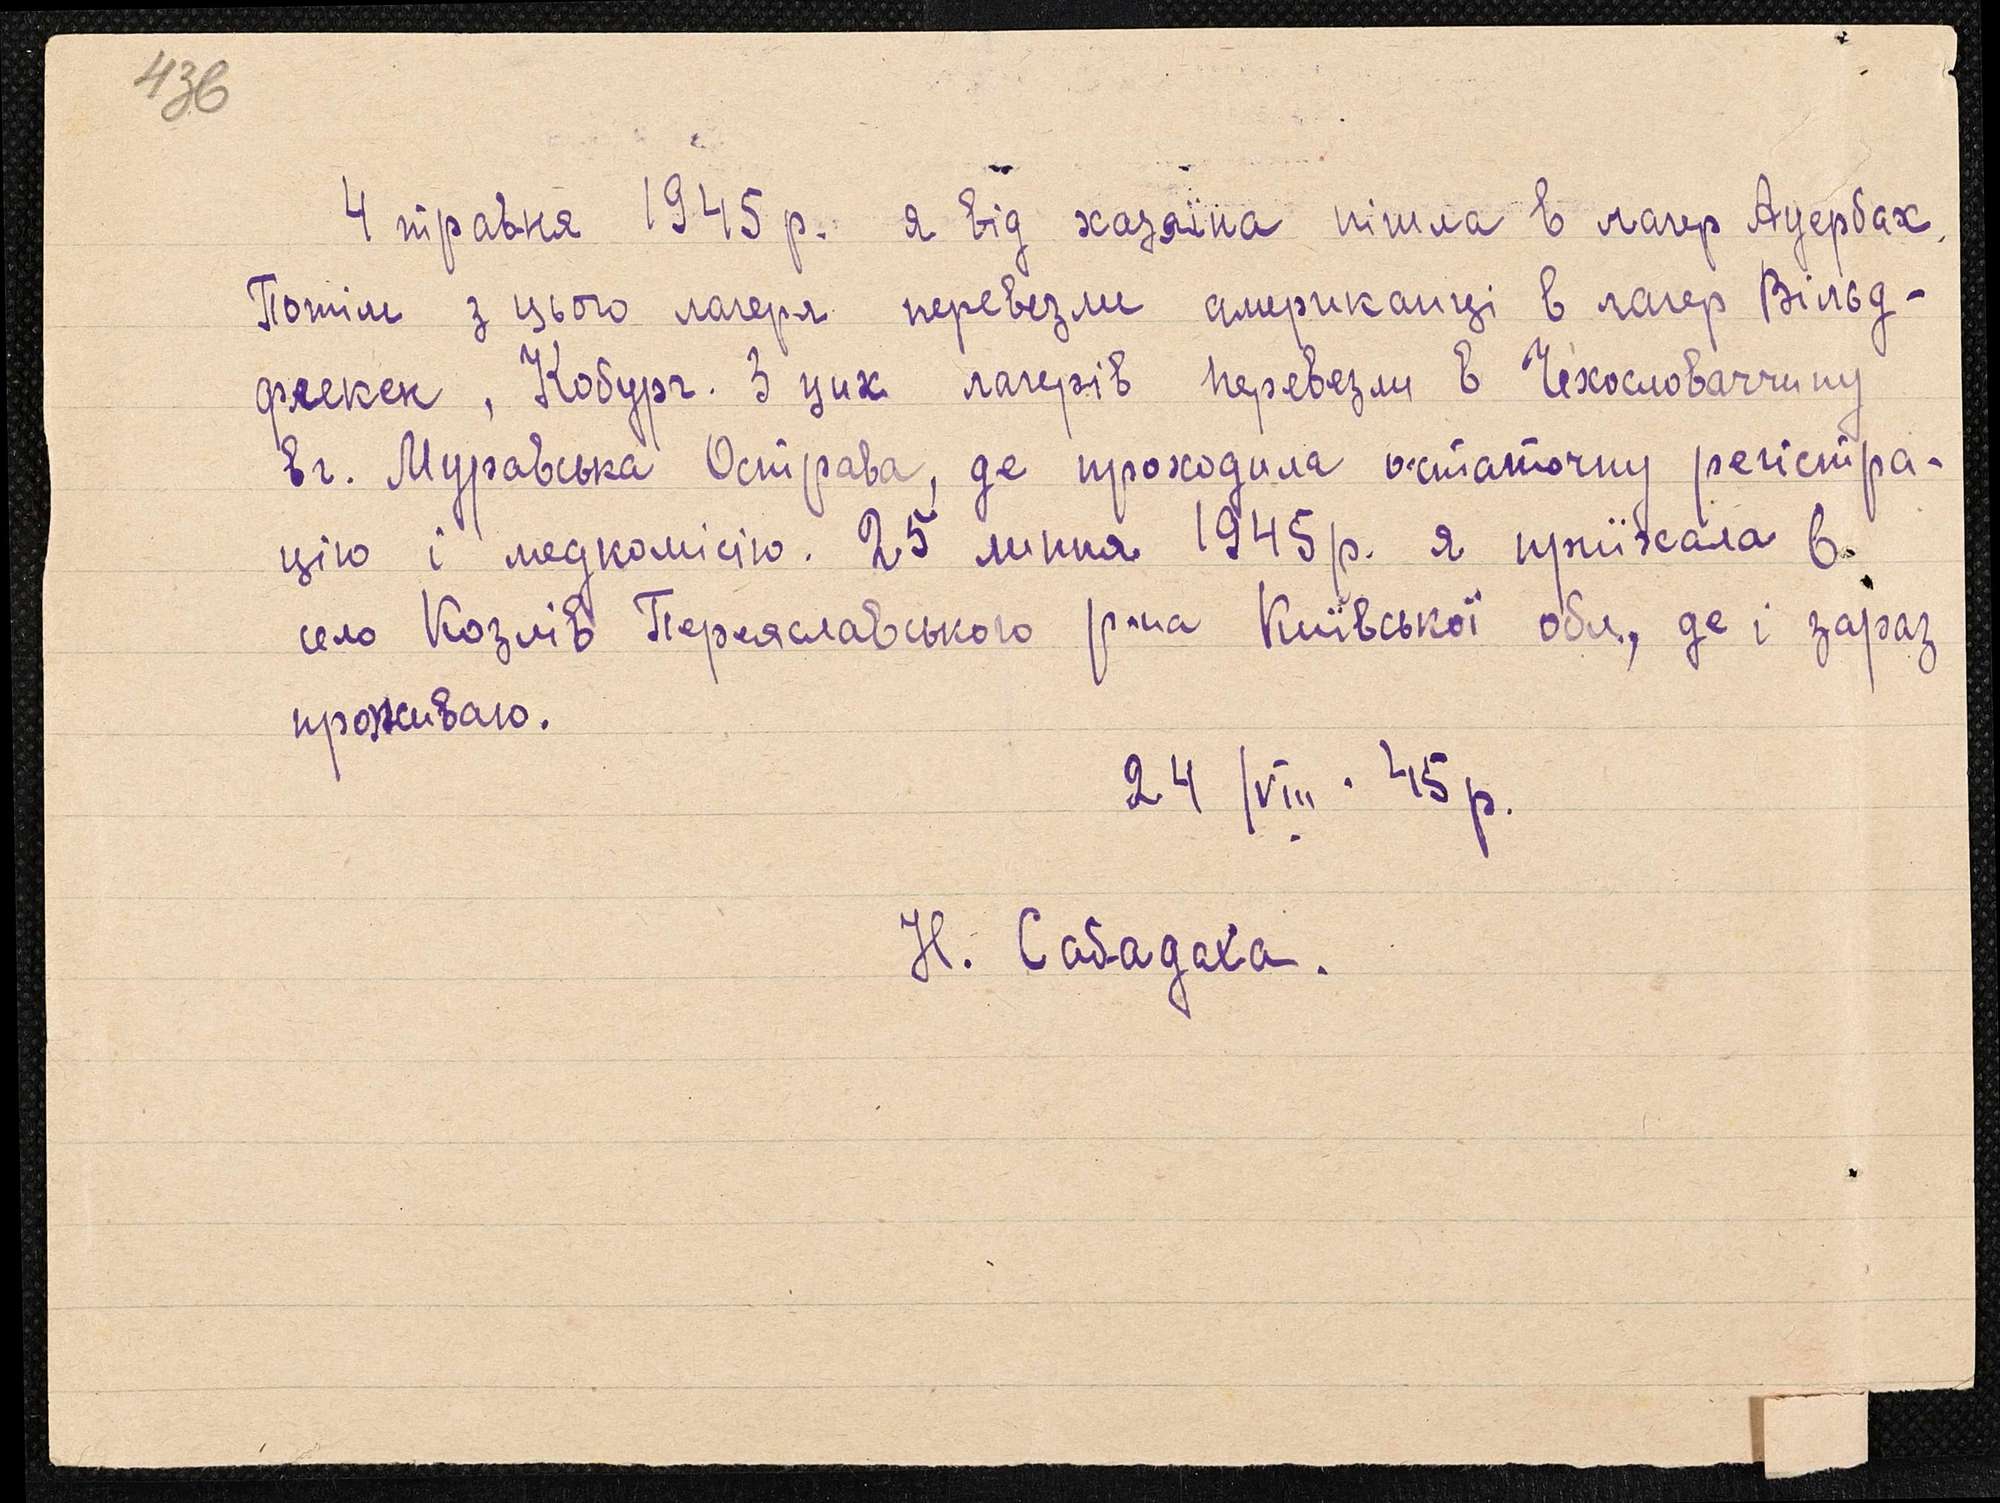 43в
4 травня 1945 р. я від хазяїна пішла в лагер Ауербах.
Потім з цього лагеря перевезли американці в лагер Вільд-
флекек, Кобург. З цих лагерів перевезли в Чехословаччину
в г. Муравська Острава, де проходила остаточну регістра-
цію і медкомісію. 25 липня 1945 р. я приїхала в
село Козлів Переяславського р-на Київської обл., де і зараз
проживаю.
24/VIII. 45 р.
Н. Сабадаха.